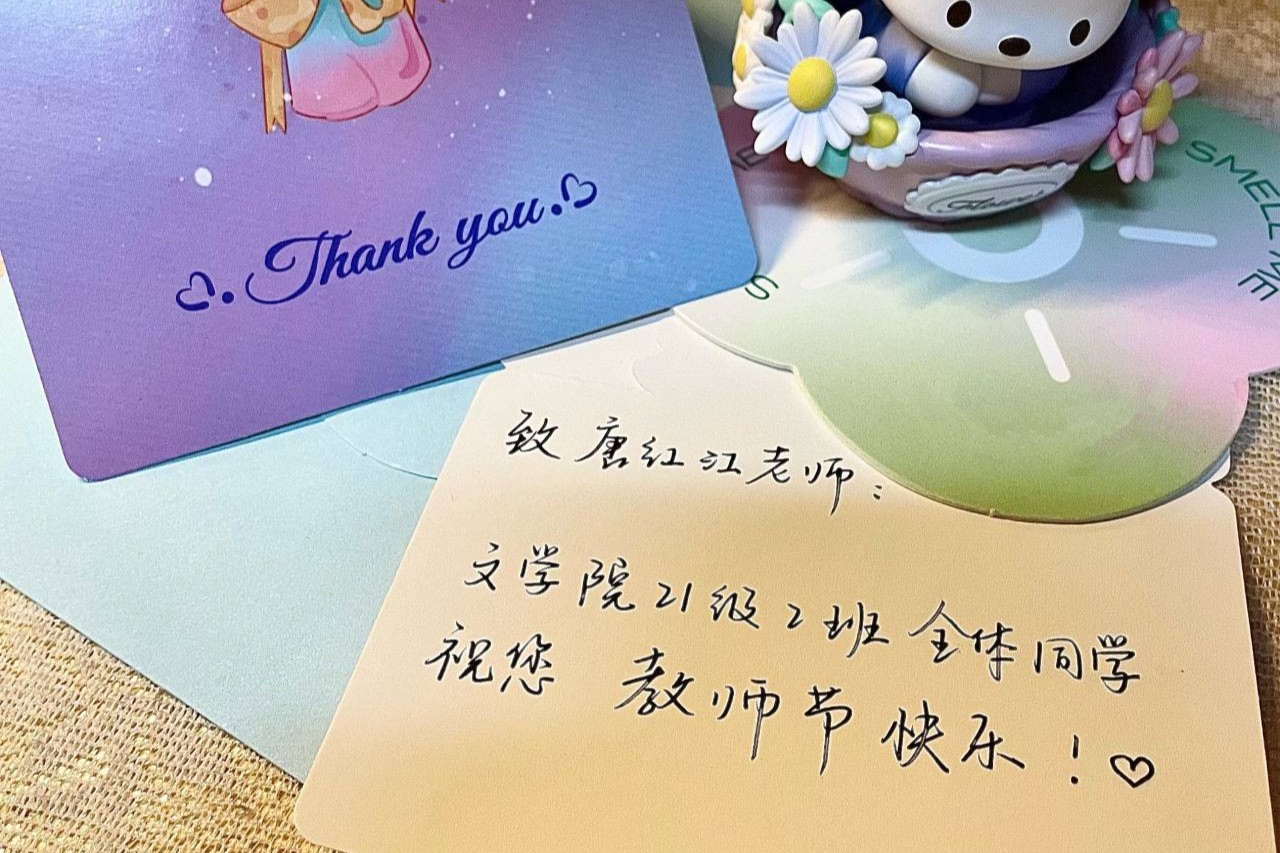 Thank you.
SMELL ME
S
致唐红江老师：
文学院21级2班全体同学
祝您 教师节快乐！♡